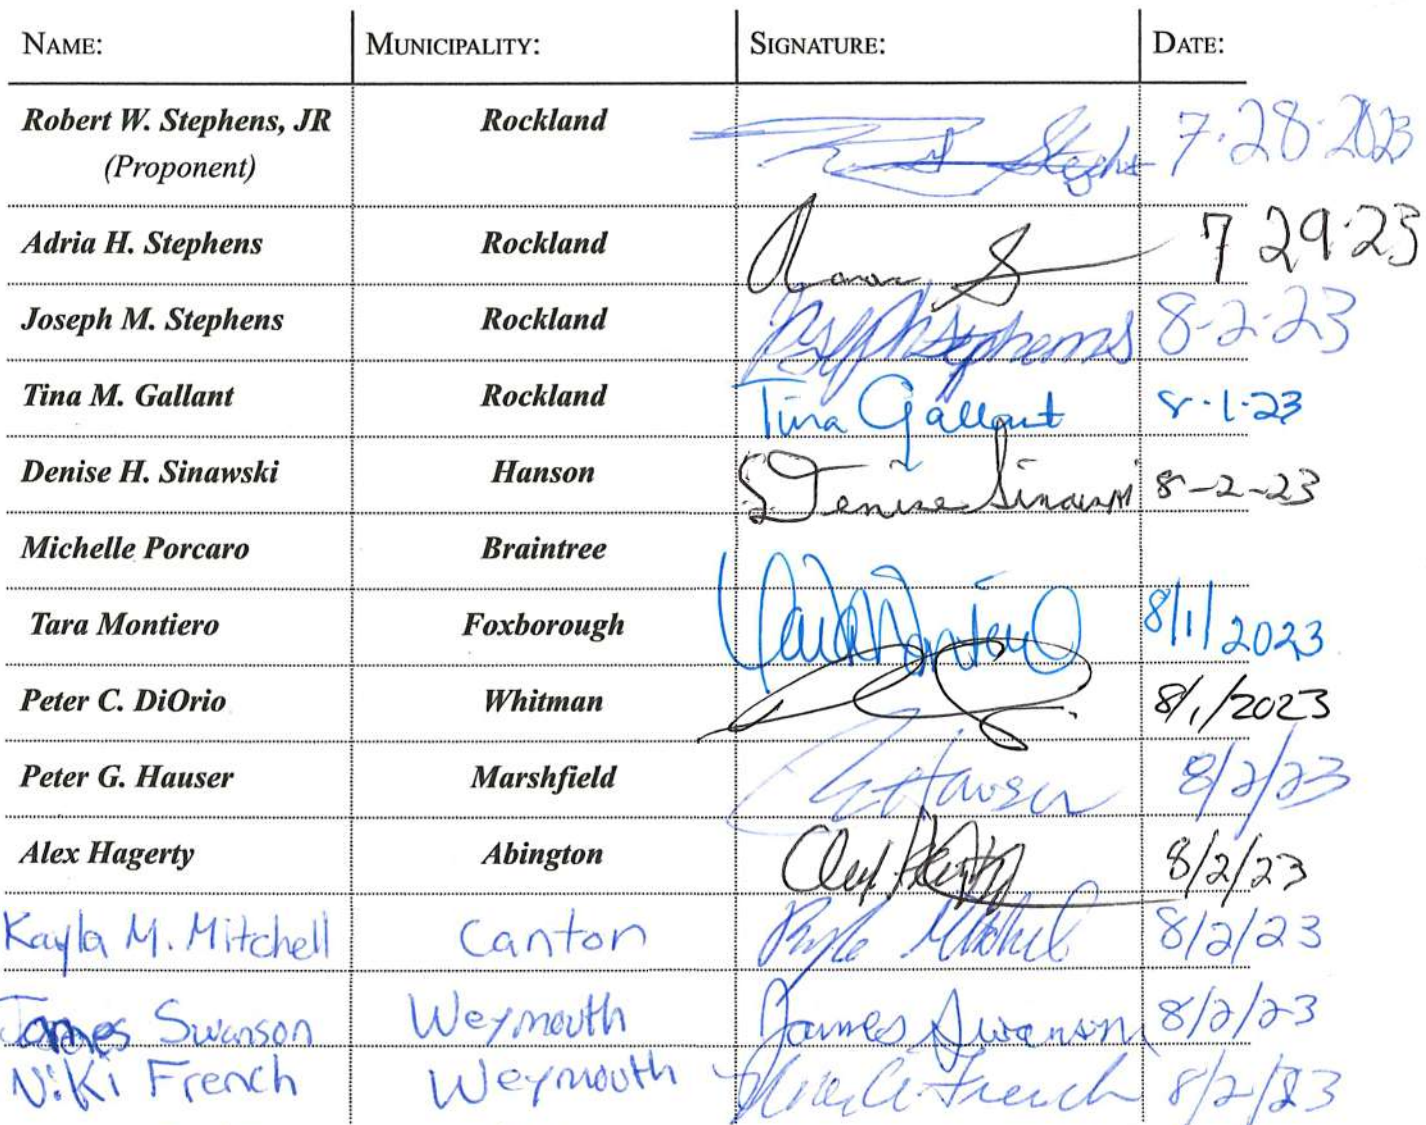 NAME: MUNICIPALITY: SIGNATURE: DATE:
Robert W. Stephens, JR Rockland Stephens 7·28·2023
(Proponent)
Adria H. Stephens Rockland 7 29·23
Joseph M. Stephens Rockland Joseph Stephens 8-2-23
Tina M. Gallant Rockland Tina Gallant 8·1·23
Denise H. Sinawski Hanson Denise Sinawski 8-2-23
Michelle Porcaro Braintree
Tara Montiero Foxborough 8/1/2023
Peter C. DiOrio Whitman 8/1/2023
Peter G. Hauser Marshfield Hauser 8/2/23
Alex Hagerty Abington Alex Hagerty 8/2/23
Kayla M. Mitchell Canton Mitchell 8/2/23
James Swanson Weymouth James Swanson 8/2/23
Niki French Weymouth French 8/2/23